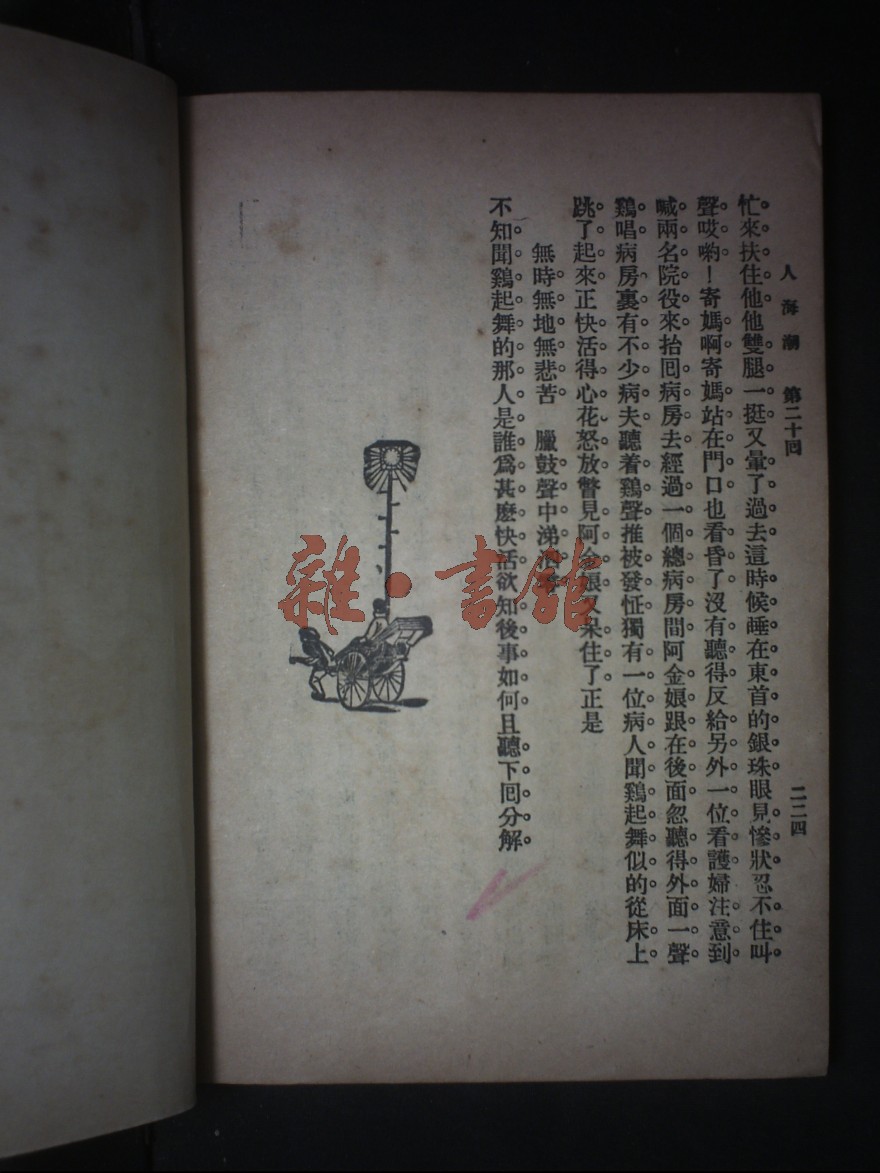 人海潮　第二十回　二二四
忙來扶住他他雙腿一挺又暈了過去這時候睡在東首的銀珠眼見慘狀忍不住叫
聲哎喲！寄媽啊寄媽站在門口也看昏了沒有聽得反給另外一位看護婦注意到
喊兩名院役來抬回病房去經過一個總病房間阿金娘跟在後面忽聽得外面一聲
鷄唱病房裏有不少病夫聽着鷄聲推被發怔獨有一位病人聞鷄起舞似的從床上
跳了起來正快活得心花怒放瞥見阿金娘又呆住了正是
無時無地無悲苦　臘鼓聲中涕
不知聞鷄起舞的那人是誰爲甚麽快活欲知後事如何且聽下回分解。
雜・書館